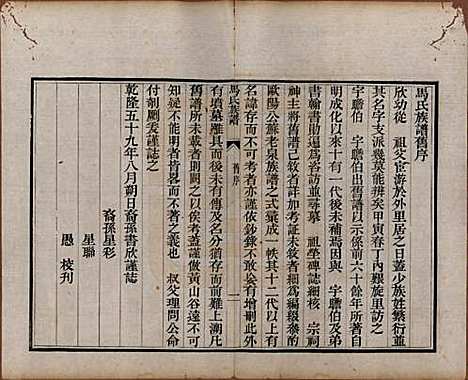 馬氏族譜舊序
欣幼從 祖父宦游於外里居之日蓋少族姓繁衍並
其名字支派幾莫能辨矣甲寅春丁內艱旋里訪之
宇 瞻伯出舊譜以示係前六十餘年所著自
明成化以來十有一代後未補焉因與 宇 瞻伯及弟
書翰書勛遍為咨訪並尋墓 祖塋碑誌細核 宗祠
神主將舊譜已敘者詳加考証未敘者細為編綴參酌
歐陽公蘇老泉族譜之式彙成一帙其十二代以上有
名諱存而不可考者亦謹依鈔錄不敢妄有增刪此外
馬氏族譜 舊序 二
有墳墓雁具而後未有傳及名分猶存而前難上溯凡
舊譜所未載者則闕之以從蓋倣黃山谷遠不可
知疑不能明者皆畧而不著之義也 叔父理問公命
付剞劂爰謹誌之
乾隆五十九年八月朔日裔孫書欣謹誌
裔孫星彩
星聯
愚 校刊